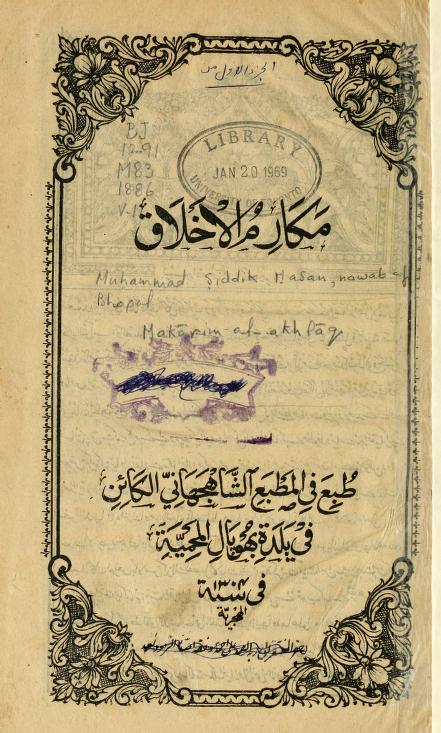 الجزء الاول من
BJ
1291
M83
1886
V.1
LIBRARY
JAN 20 1969
UNIVERSITY OF TORONTO
مَكَارِمُ الْاَخْلَاقِ
Muhammad Siddik Hasan, nawab of
Bhopal
Makārim al-akhlāq
طُبِعَ فِي المَطْبَعِ الشَّاهْجَهَانِيِّ الكَائِنِ
فِي بَلْدَةِ بُهُوپَالَ المَحْمِيَّةِ
فِي سَنَة ١٣٠٤
الهجرية